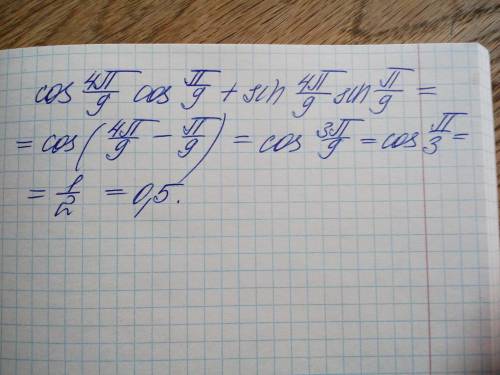 cos 4π/9 cos π/9 + sin 4π/9 sin π/9 =
= cos(4π/9 − π/9) = cos 3π/9 = cos π/3 =
= 1/2 = 0,5.